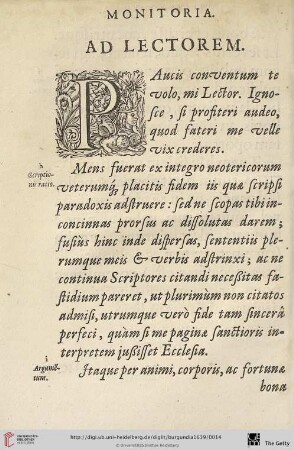 MONITORIA.
AD LECTOREM.
PAucis conventum te
volo, mi Lector. Igno-
sce, si profiteri audeo,
quod fateri me velle
vix crederes.
Mens fuerat ex integro neotericorum
veterumq́; placitis fidem iis quæ scripsi
paradoxis adstruere: sed ne scopas tibi in-
concinnas prorsus ac dissolutas darem;
fusiùs hinc inde dispersas, sententiis ple-
rumque meis & verbis adstrinxi; ac ne
continua Scriptores citandi necessitas fa-
stidium pareret, ut plurimùm non citatos
admisi, utrumque verò fide tam sincerâ
perfeci, quàm si me paginæ sanctioris in-
terpretem jußisset Ecclesia.
i
Argumen-
tum.
Itaque per animi, corporis, ac fortunæ
bona
http://digi.ub.uni-heidelberg.de/diglit/burgundia1639/0014
The Getty